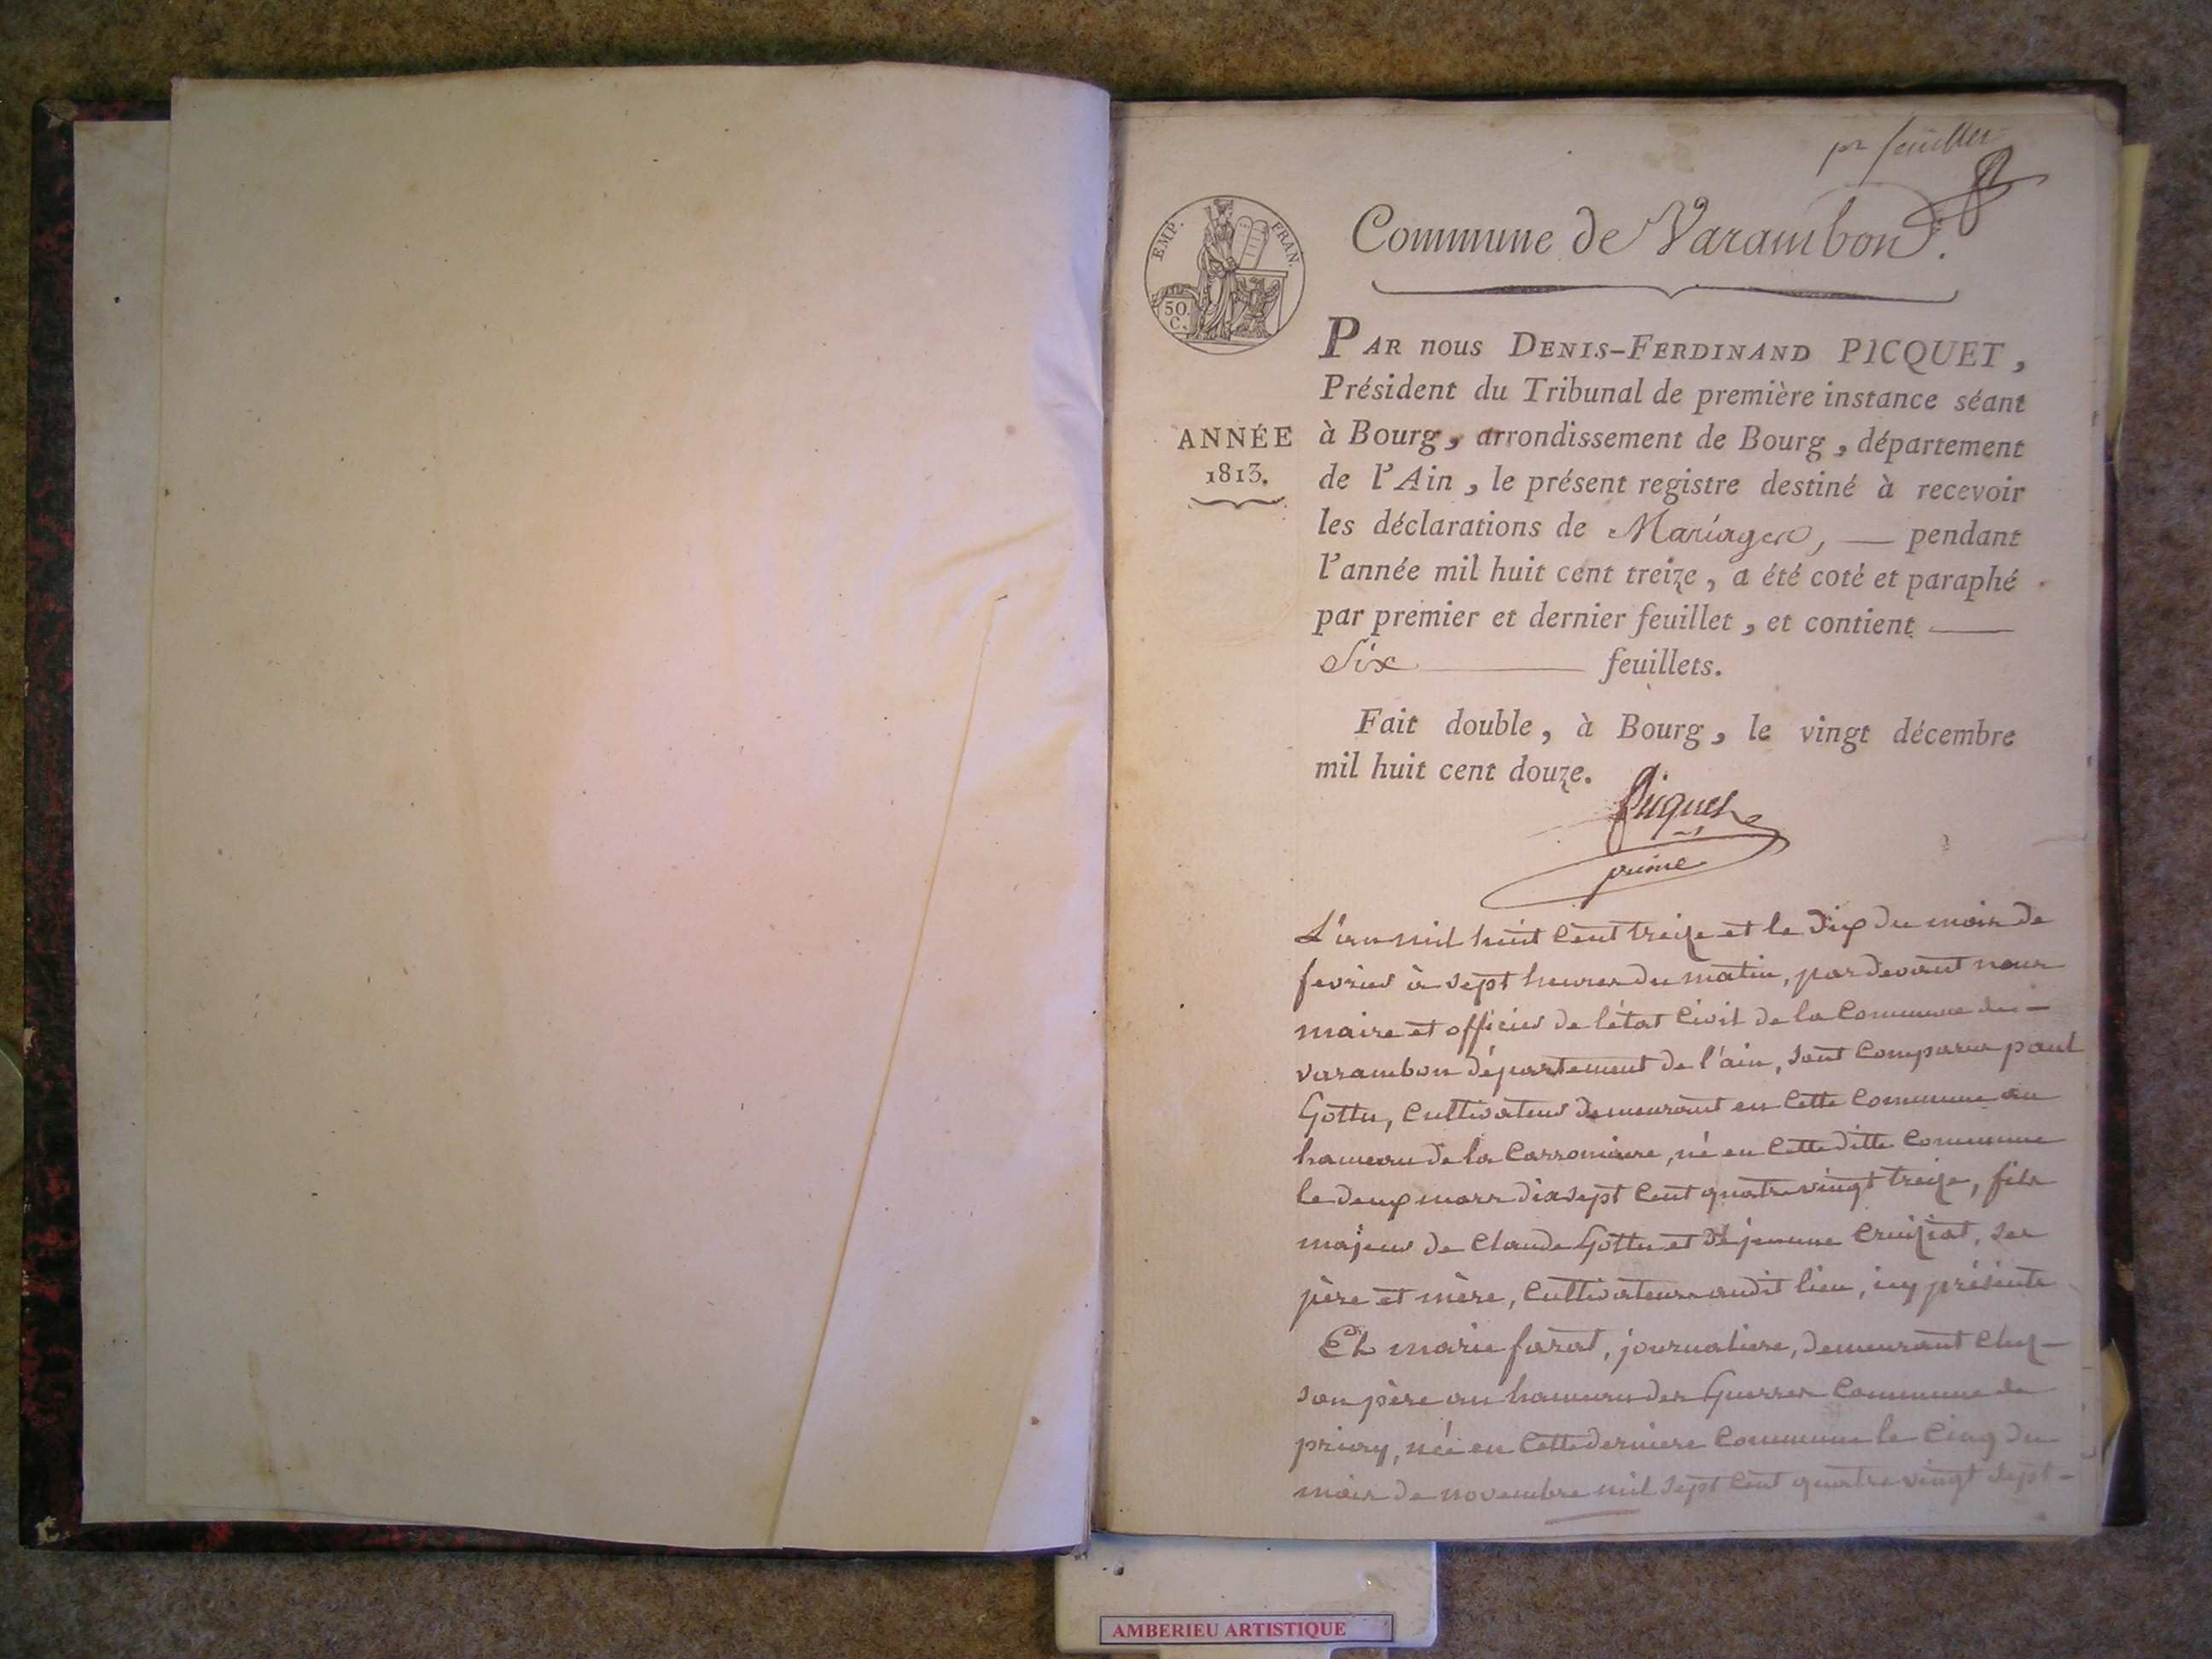 pr feuillet
EMP. FRAN.
50. C.
Commune de Varambon.
ANNÉE
1813.
PAR nous DENIS-FERDINAND PICQUET,
Président du Tribunal de première instance séant
à Bourg, arrondissement de Bourg, département
de l'Ain, le présent registre destiné à recevoir
les déclarations de Mariages, — pendant
l'année mil huit cent treize, a été coté et paraphé
par premier et dernier feuillet, et contient —
Six — feuillets.
Fait double, à Bourg, le vingt décembre
mil huit cent douze.
Picquet
L'an mil huit cent treize et le dix du mois de
fevrier à sept heures du matin, pardevant nous
maire et officier de l'état civil de la Commune de -
varambon département de l'ain, sont comparus paul
Gottu, cultivateur demeurant en cette Commune au
hameau de la Carroniere, né en cette ditte Commune
le deux mars dix sept cent quatre vingt treize, fils
majeur de Claude Gottu et de jeanne Cruiziat, ses
père et mère, cultivateurs audit lieu, icy présents
Et marie farat, journaliere, demeurant chez -
son père au hameau des Guerres Commune de
priay, née en cette derniere Commune le cinq du
mois de novembre mil sept cent quatre vingt sept -
AMBERIEU ARTISTIQUE